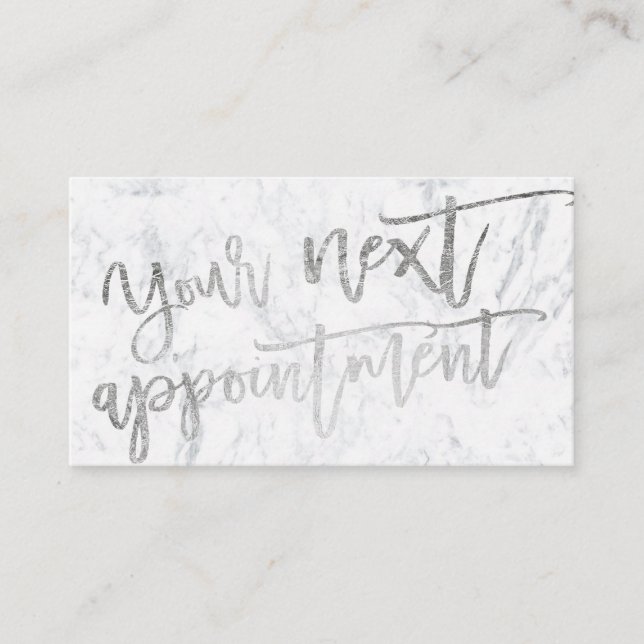 Your next
appointment